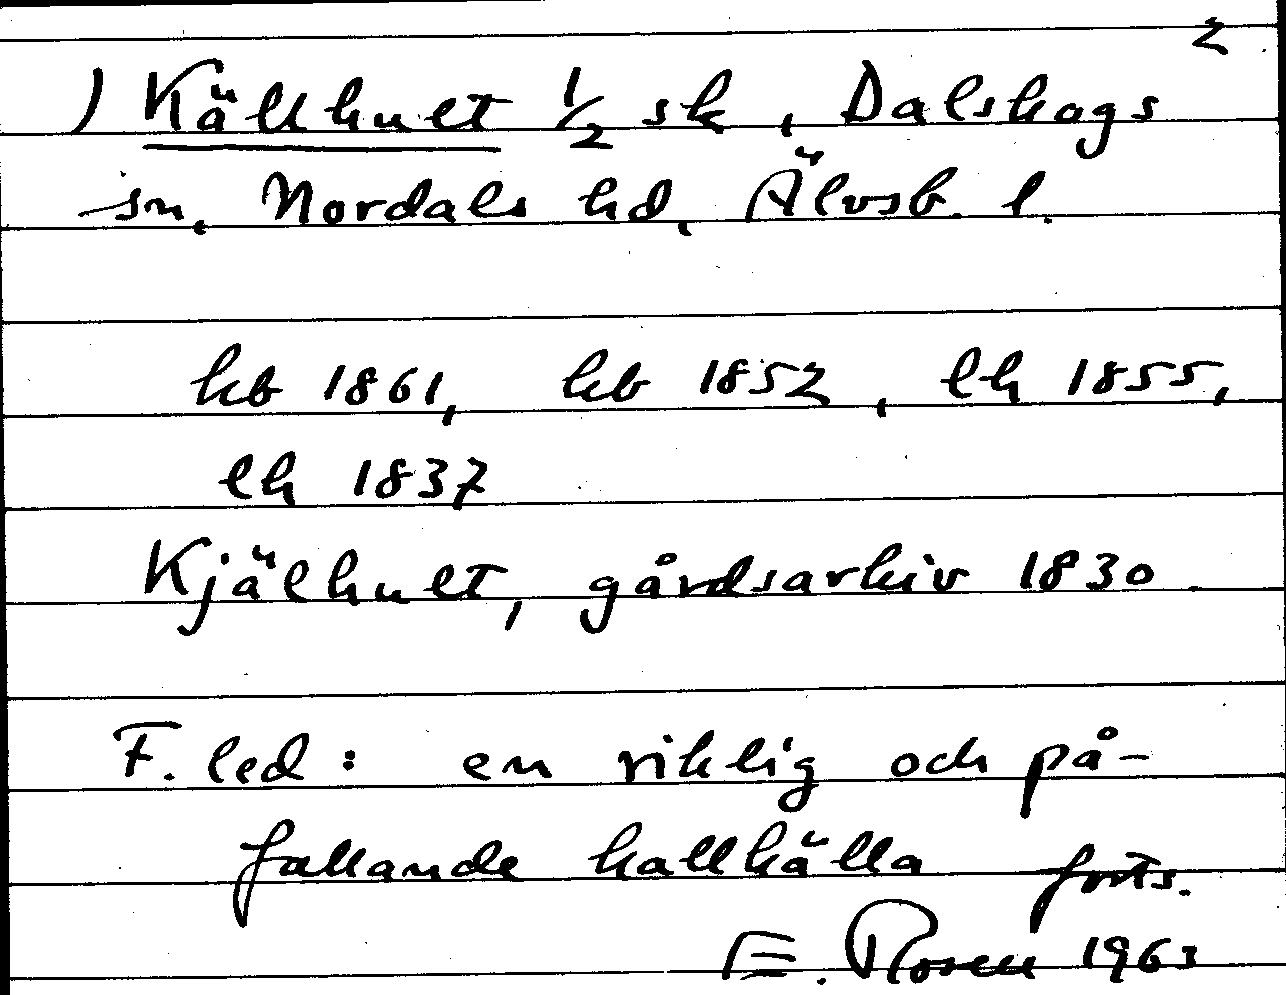 2
) Källhult 1/2 sk, Dalskogs
sn, Nordals hd, Älvsb. l.
kb 1861, kb 1852, lh 1855,
lh 1837
Kjälhult, gårdsarkiv 1830
F. led: en riklig och på-
fallande kallkälla forts.
E. Rosen 1963